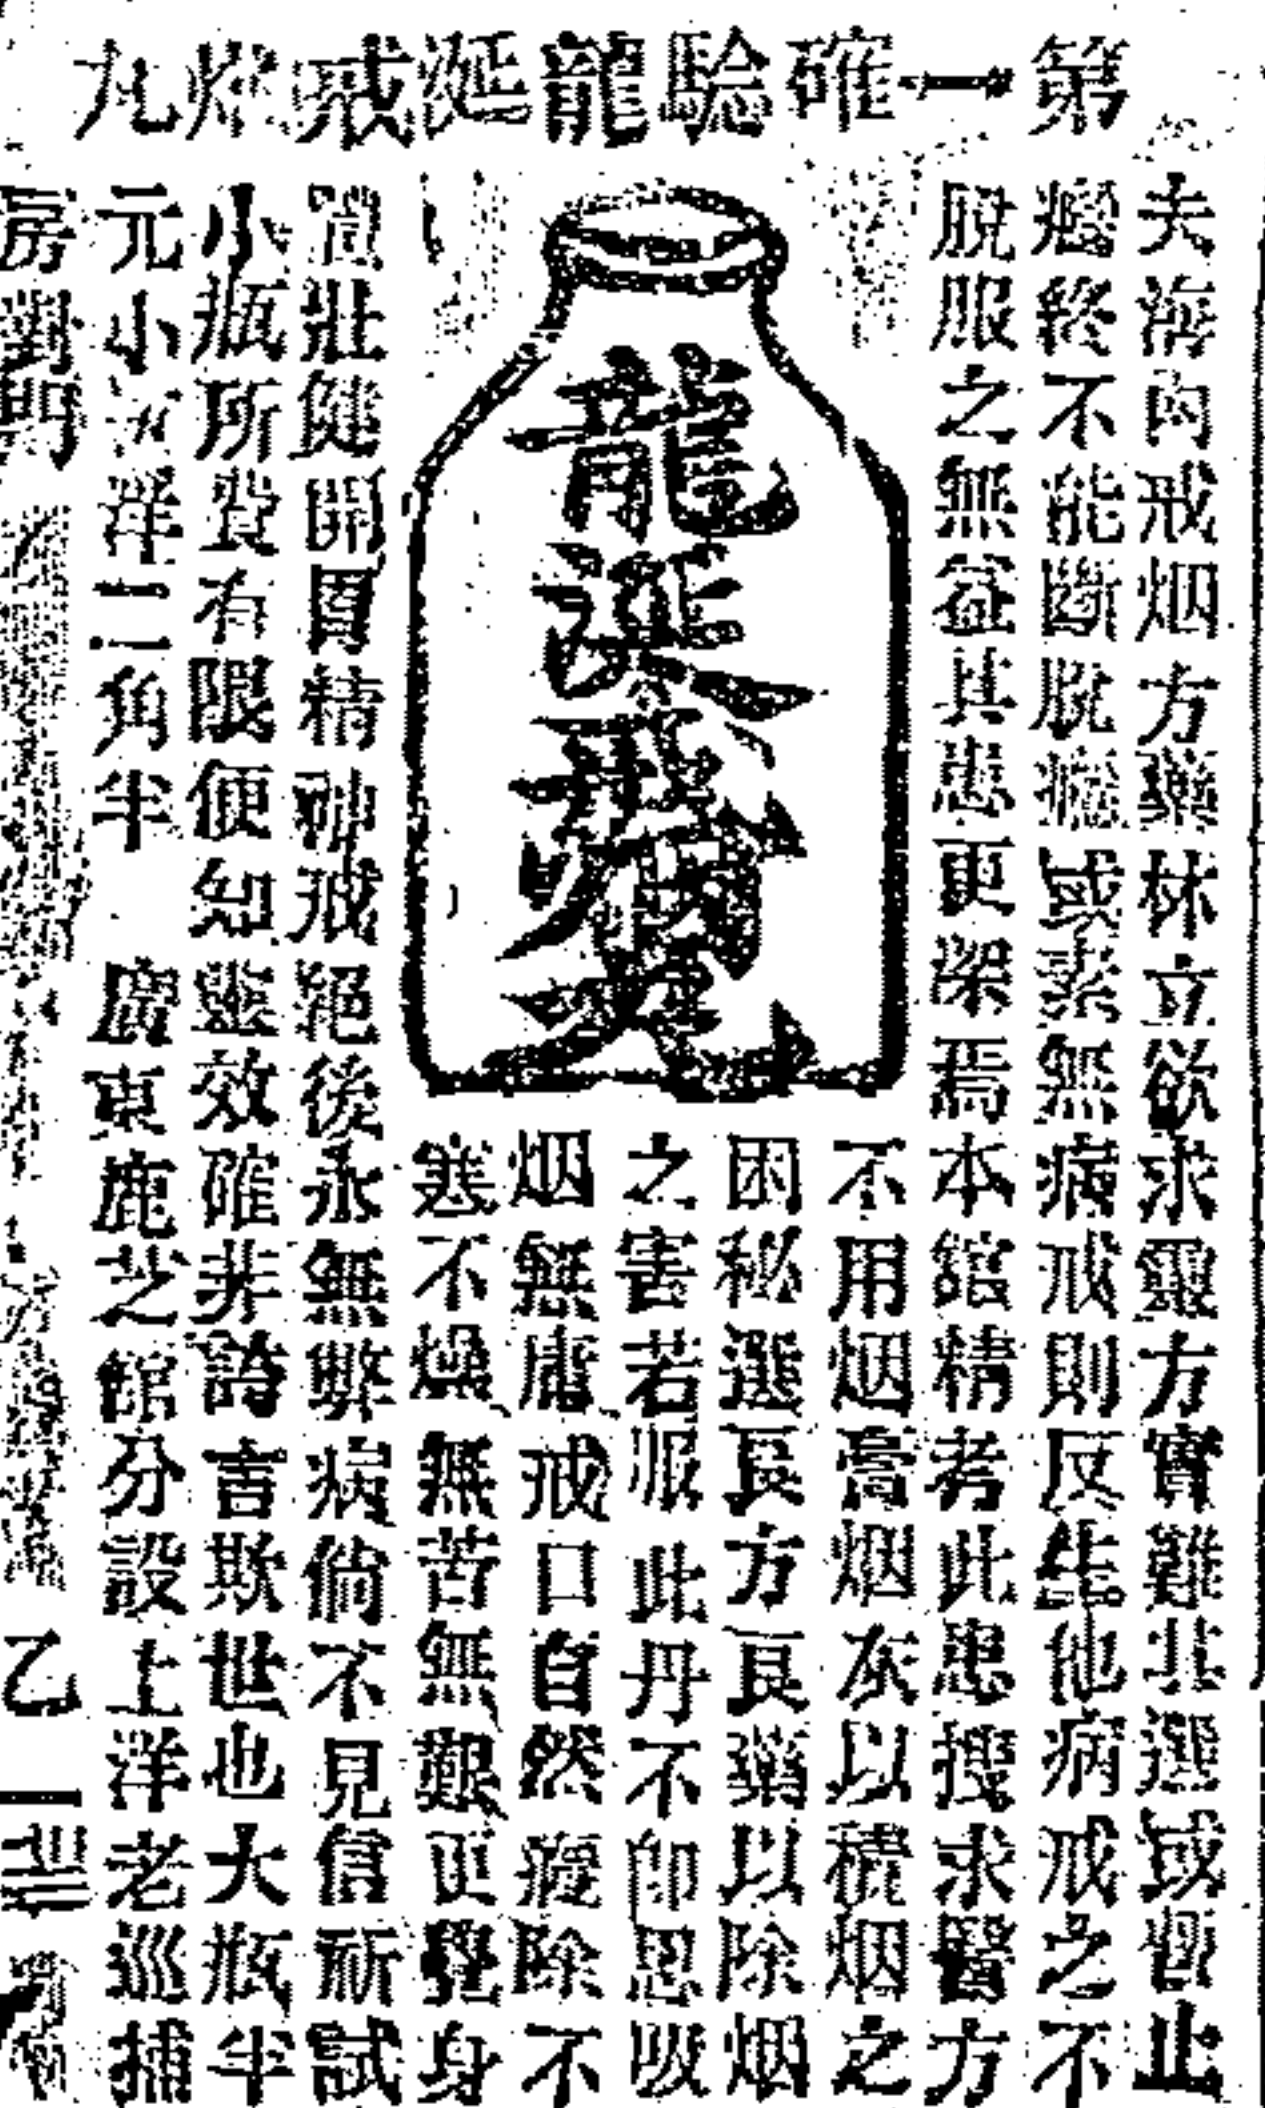 第一確驗龍涎戒烟丸
夫海內戒烟方藥林立欲求靈方實難其選或暫止
癮終不能斷脫癮或素無病戒則反生他病戒之不
脫服之無益其患更深焉本舘精考此患搜求醫方
不用烟膏烟灰以積烟之
困秘選良方良藥以除烟
之害若服此丹不卽思吸
烟無庸戒口自然癮除不
寒不燥無苦無艱更覺身
龍涎戒烟丸
壯健開胃精神戒絕後永無弊病倘不見信祈試
小瓶所費有限便知靈效確非誇言欺世也大瓶半
元小瓶洋二角半 廣東鹿芝館分設上洋老巡捕
房對門